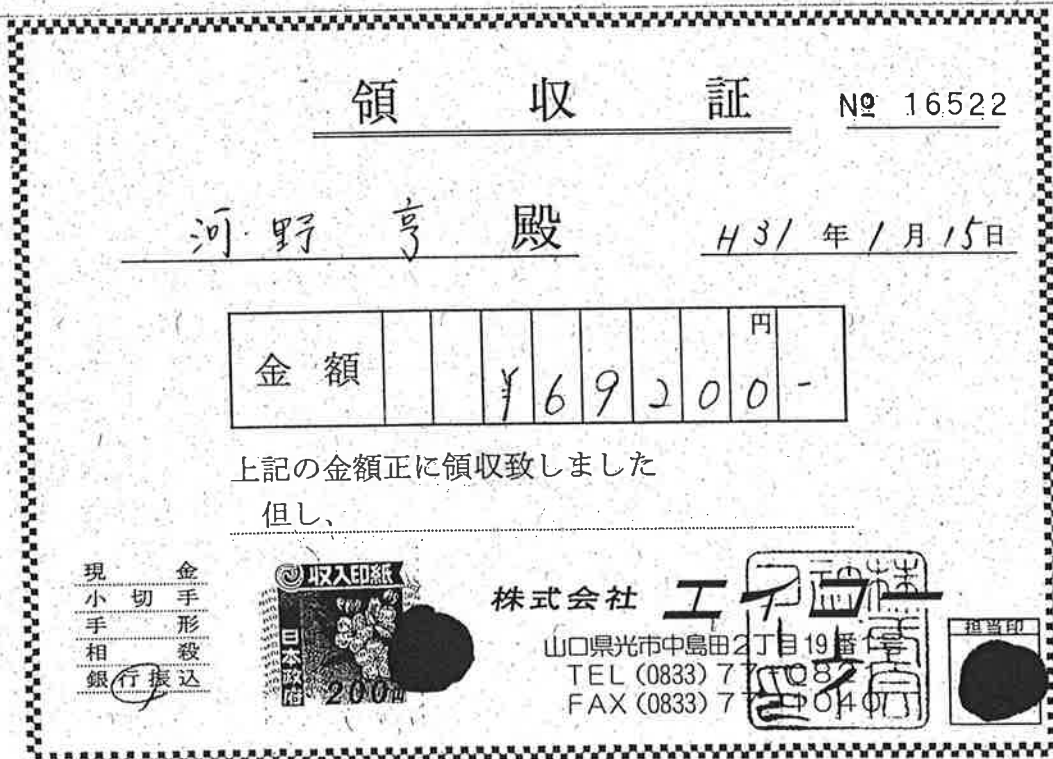 領収証
№ 16522
河野 亨 殿
H31年1月15日
金額 ¥69200-
円
上記の金額正に領収致しました
但し、
現金
小切手
手形
相殺
銀行振込
収入印紙
日本政府
200円
株式会社 エイロー
山口県光市中島田2丁目19番1号
TEL (0833) 77
FAX (0833) 7
担当印